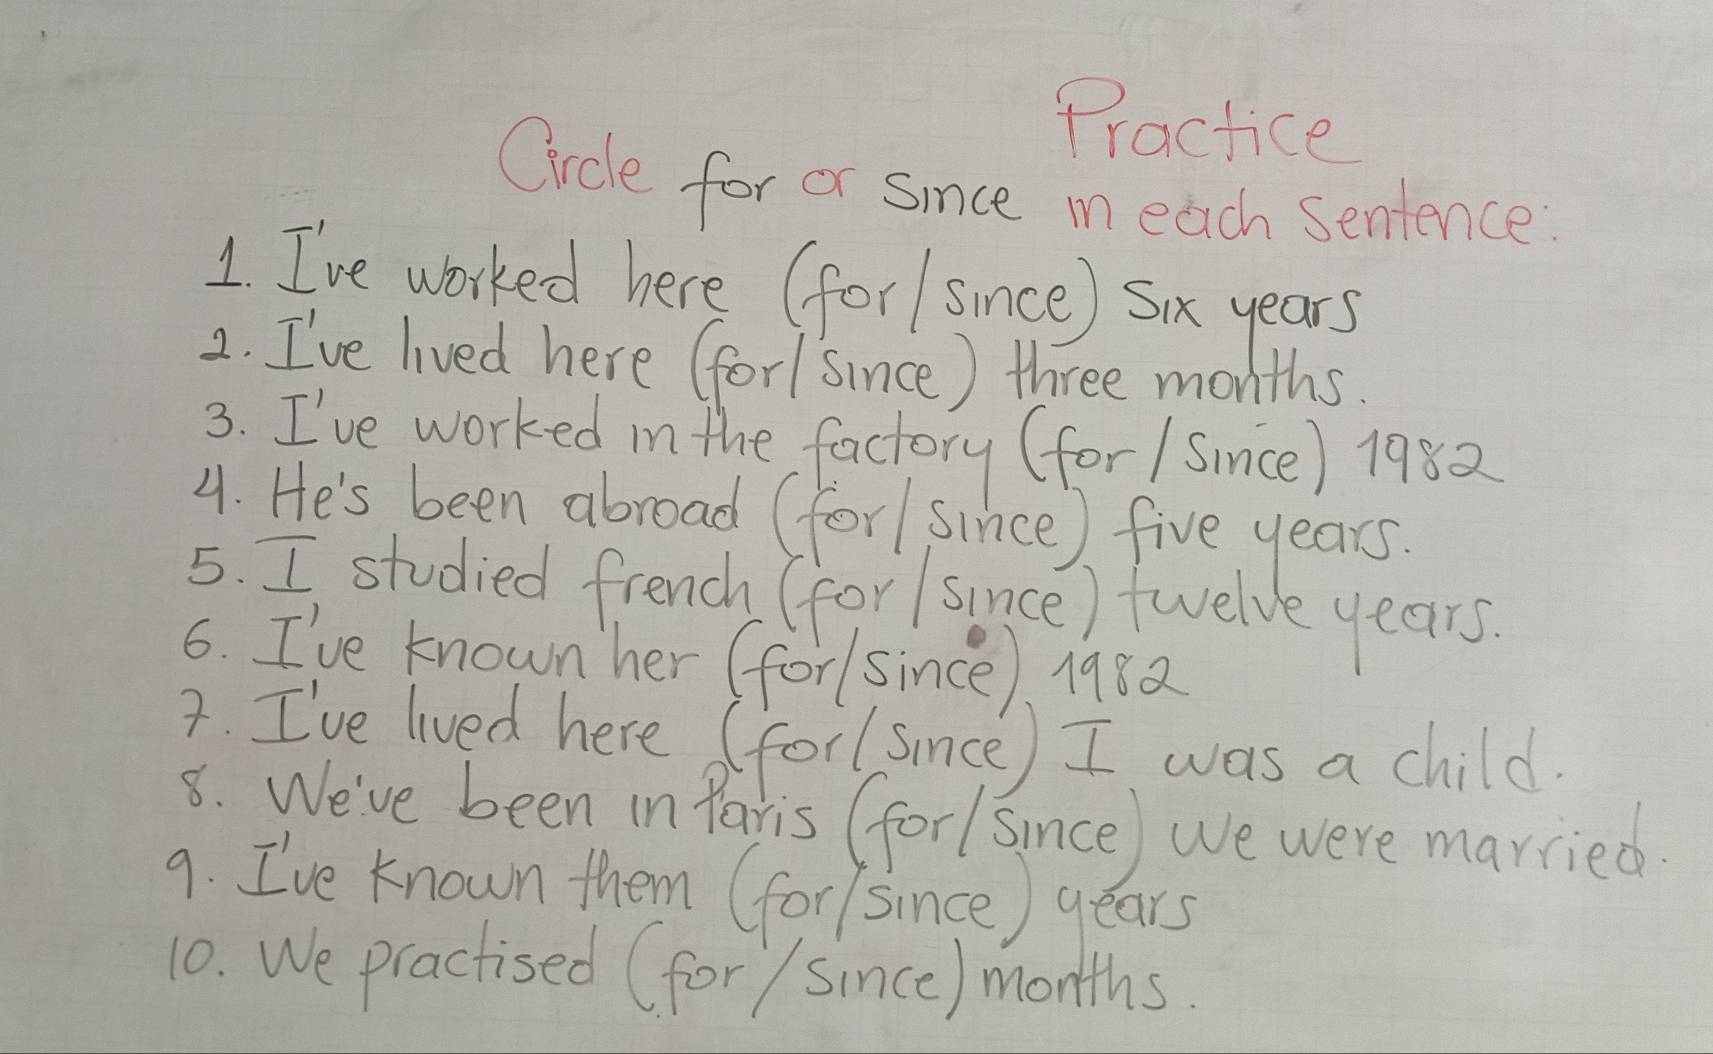 Practice
Circle for or since in each sentence:
1. I've worked here (for/since) six years
2. I've lived here (for/since) three months.
3. I've worked in the factory (for/since) 1982
4. He's been abroad (for/since) five years.
5. I studied french (for/since) twelve years.
6. I've known her (for/since) 1982
7. I've lived here (for/since) I was a child.
8. We've been in Paris (for/since) we were married.
9. I've known them (for/since) years
10. We practised (for/since) months.